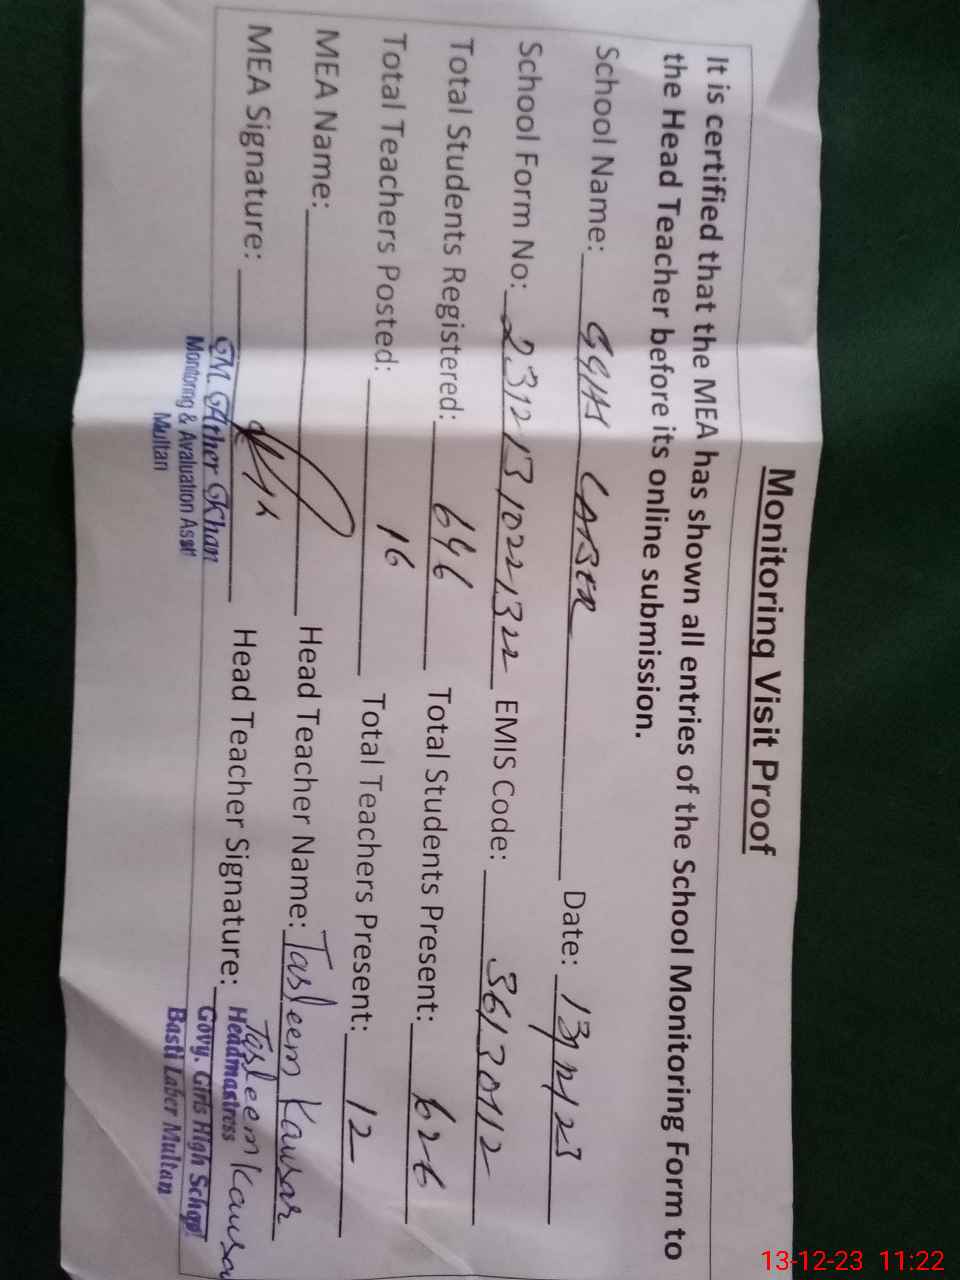 Monitoring Visit Proof
It is certified that the MEA has shown all entries of the School Monitoring Form to
the Head Teacher before its online submission.
School Name: GGHS LABER Date: 13/12/23
School Form No: 23121310221322 EMIS Code: 36130112
Total Students Registered: 646 Total Students Present: 626
Total Teachers Posted: 16 Total Teachers Present: 12
MEA Name: Head Teacher Name: Tasleem Kausar
MEA Signature: Head Teacher Signature: Tasleem Kausar
M. Ather Khan
Monitoring & Avaluation Asstt
Multan
Headmastress
Govy. Girls High School
Basti Laber Multan
13-12-23 11:22